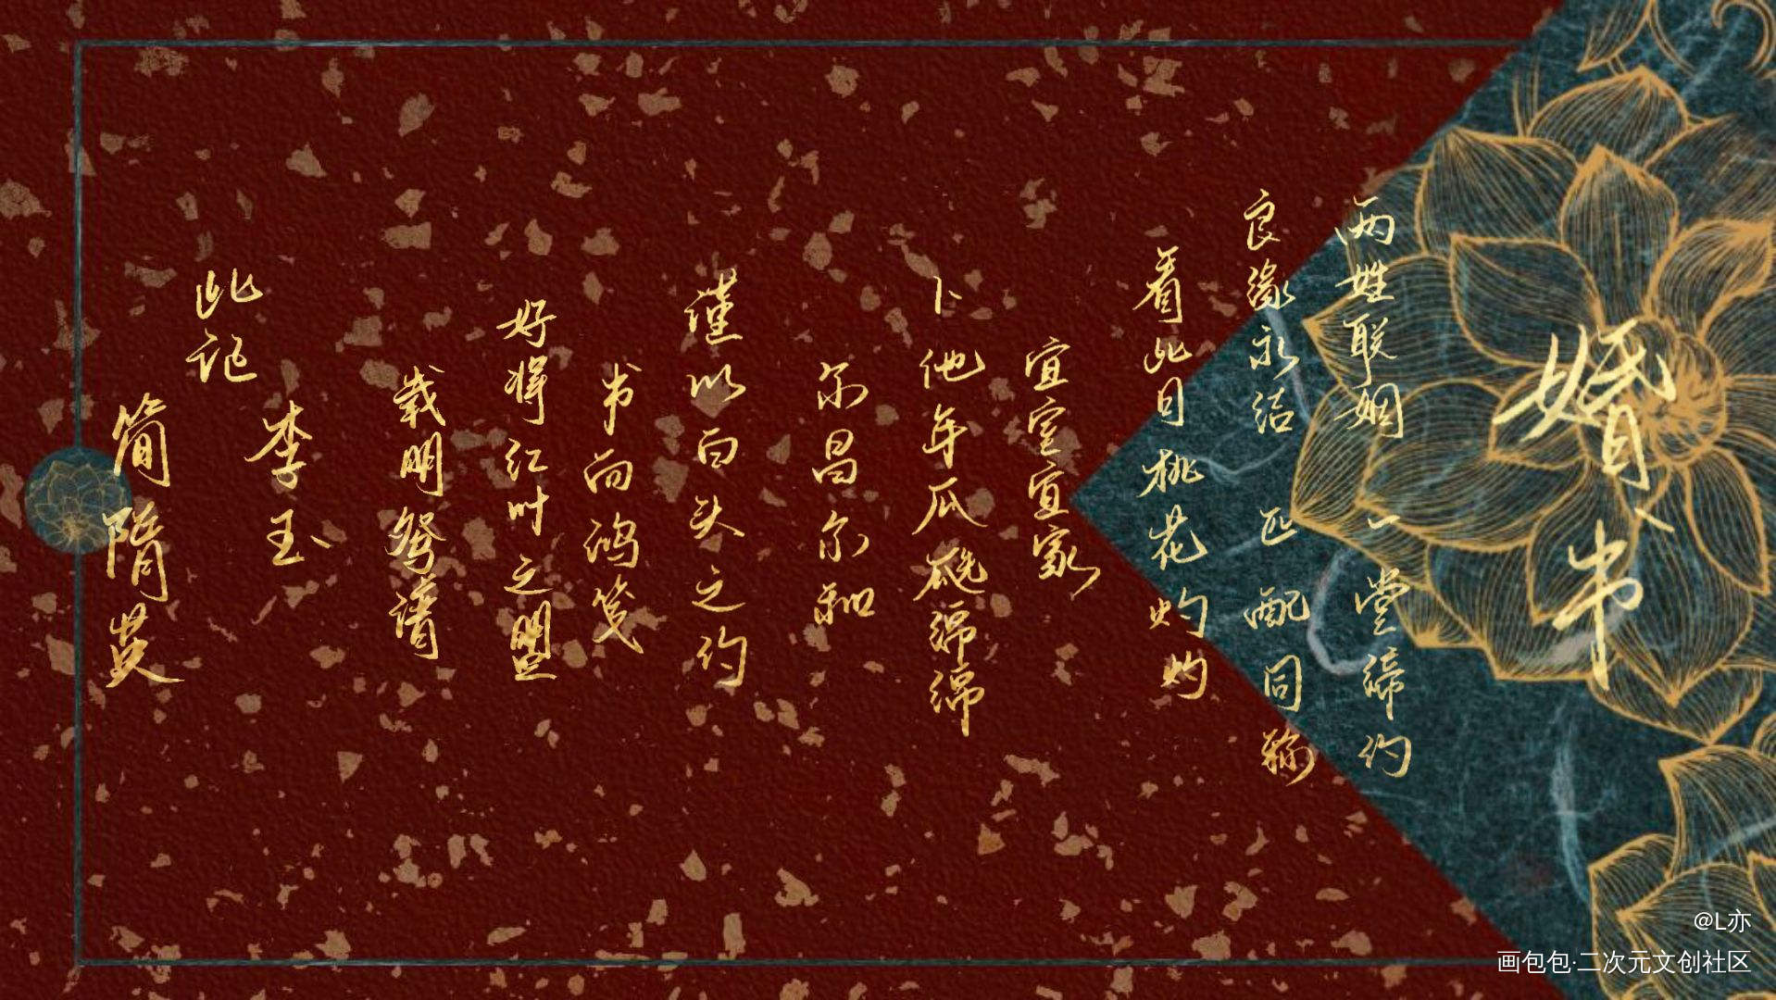 婚书
两姓联姻 一堂缔约
良缘永结 匹配同称
看此日桃花灼灼
宜室宜家
卜他年瓜瓞绵绵
尔昌尔和
谨以白头之约
书向鸿笺
好将红叶之盟
载明鸳谱
此记
李玉
简隋英
@L亦
画包包·二次元文创社区